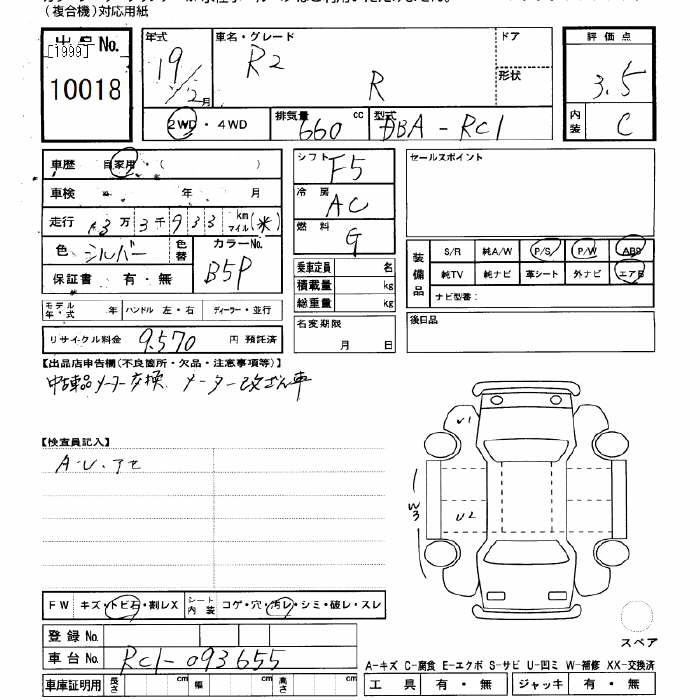 (複合機)対応用紙
出品No.
[1999]
10018
年式 19/12月
車名・グレード R2 R
ドア
形状
評価点 3.5
内装 C
2WD・4WD
排気量 660 cc
型式 DBA-RC1
車歴 自家用・(　　)
車検 年 月
走行 3万3千933 km マイル (米)
色 シルバー 色替
カラーNo. B5P
保証書 有・無
モデル年・式 年 ハンドル 左・右 ディーラー・並行
リサイクル料金 9,570 円 預託済
シフト F5
冷房 AC
燃料 G
乗車定員 名
積載量 kg
総重量 kg
名変期限
月 日
セールスポイント
装備品
S/R 純A/W P/S P/W ABS
純TV 純ナビ 革シート 外ナビ エアB
ナビ型番:
後日品
【出品店申告欄(不良箇所・欠品・注意事項等)】
中古品メーター交換 メーター改ざん車
【検査員記入】
A・U・アセ
U1
U2
W3
FW キズ・トビ石・割レX
シート内装 コゲ・穴・汚レ・シミ・破レ・スレ
スペア
登録No.
車台No. RC1-093655
車庫証明用 長さ cm 幅 cm 高さ cm
A-キズ C-腐食 E-エクボ S-サビ U-凹ミ W-補修 XX-交換済
工具 有・無 ジャッキ 有・無